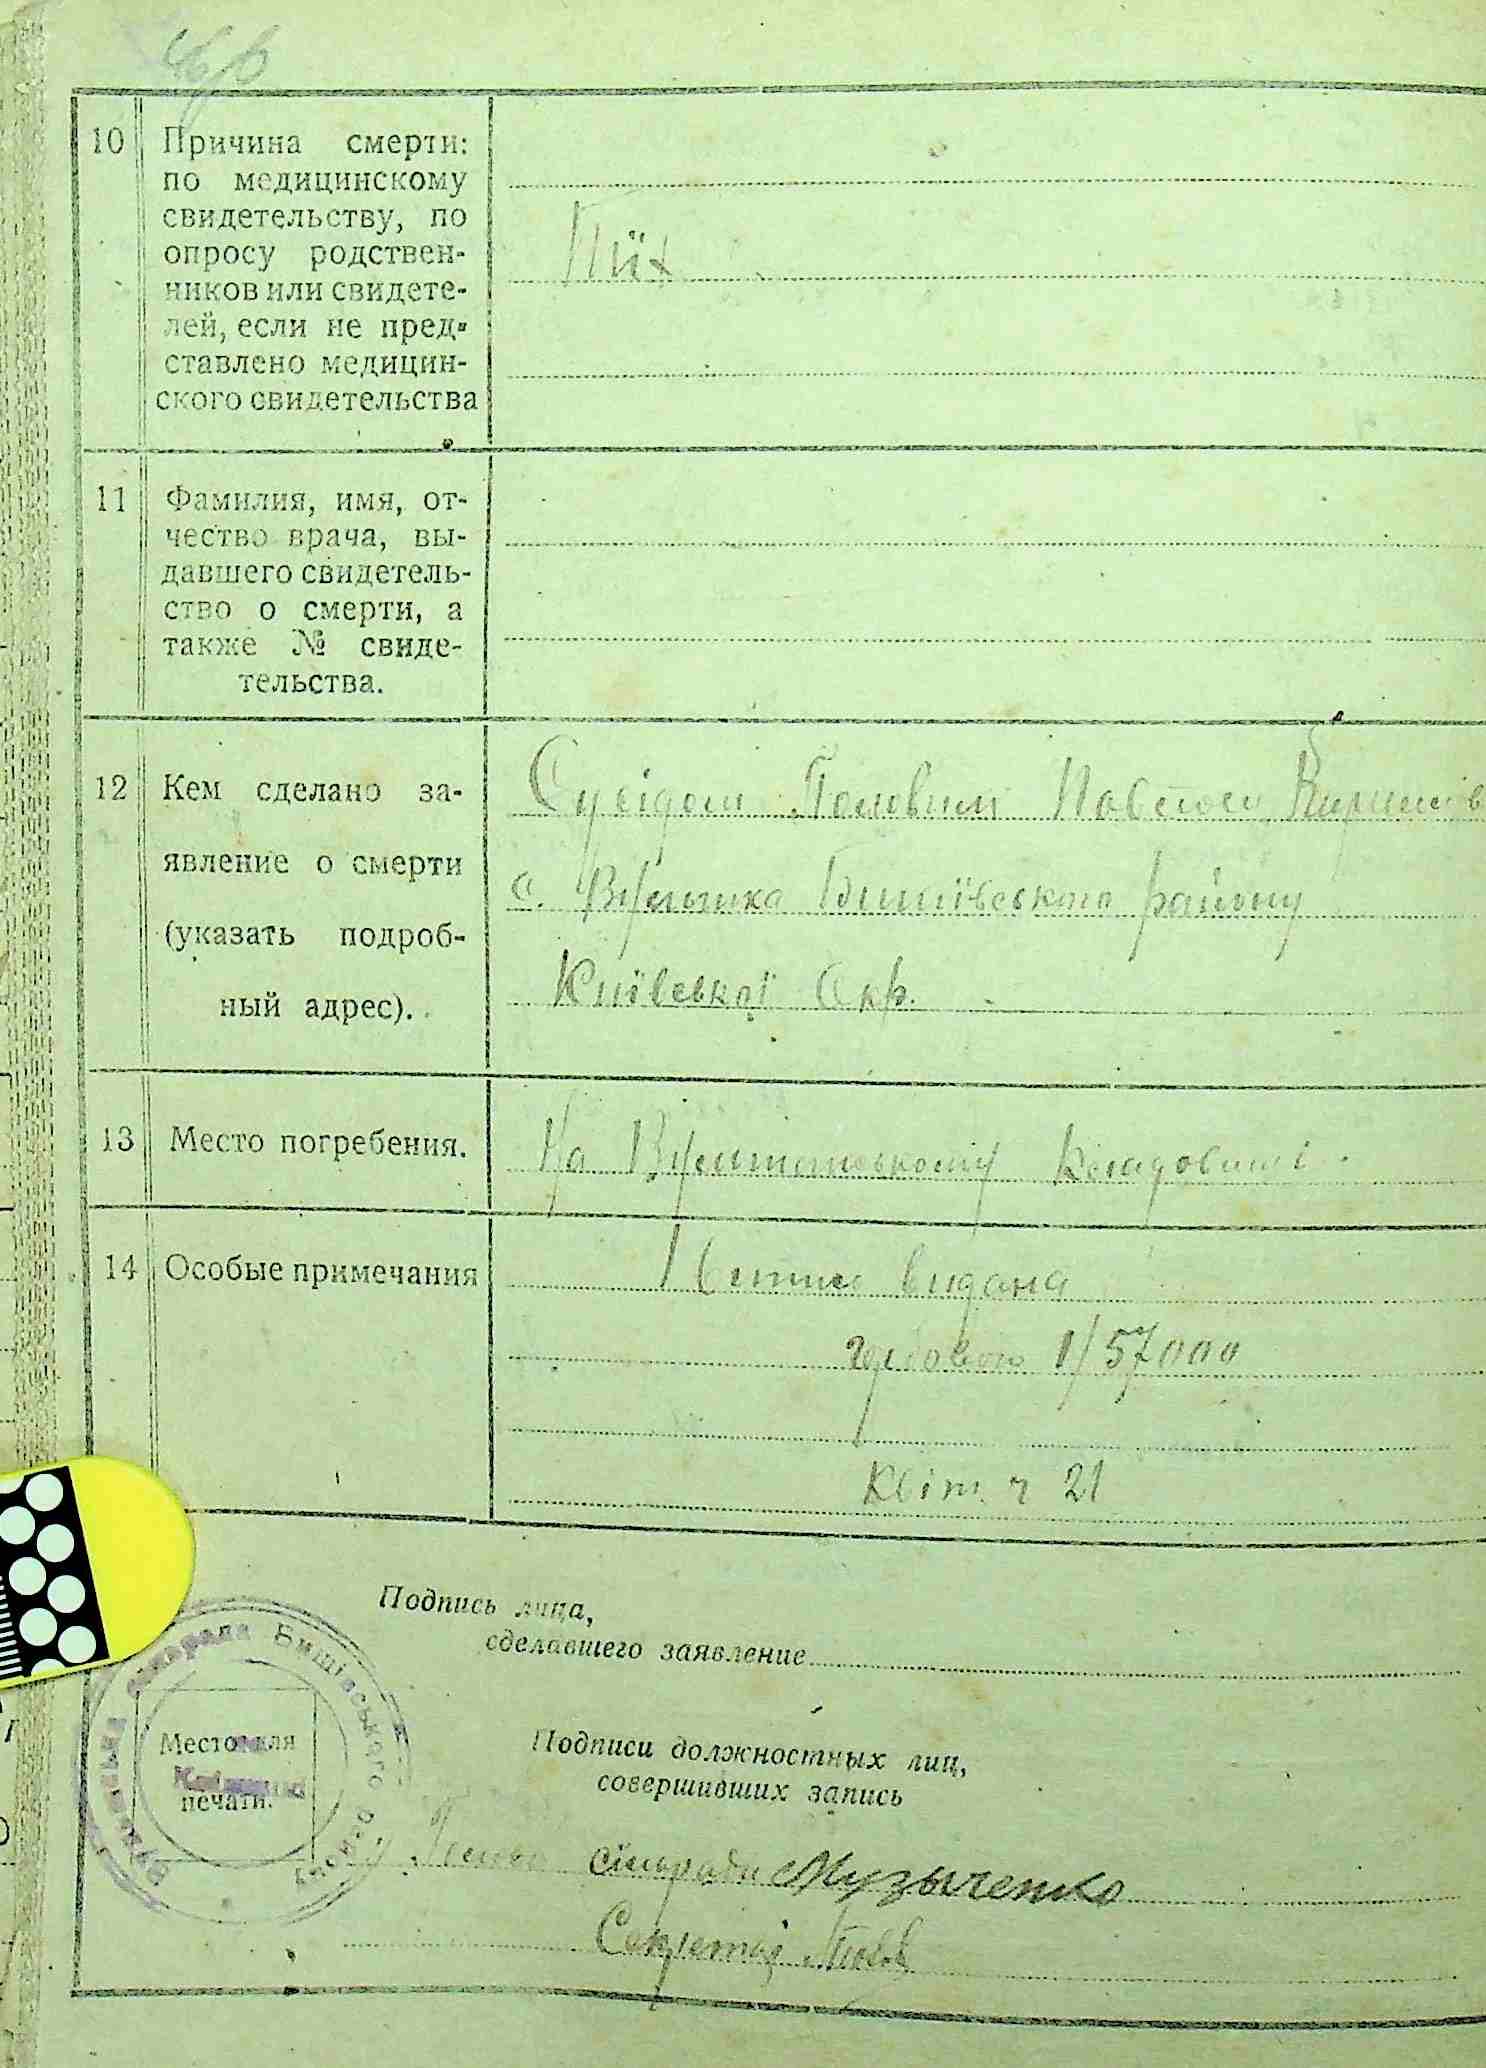 10 Причина смерти:
по медицинскому
свидетельству, по
опросу родствен-
ников или свидете-
лей, если не пред-
ставлено медицин-
ского свидетельства
11 Фамилия, имя, от-
чество врача, вы-
давшего свидетель-
ство о смерти, а
также № свиде-
тельства.
12 Кем сделано за-
явление о смерти
(указать подроб-
ный адрес).
Сусідом
с. Бишівського району
Київської Окр.
13 Место погребения.
На кладовищі
14 Особые примечания
видана
гербового 1/57000
квіт. ч 21
Подпись лица,
сделавшего заявление
Место для
печати.
сільрада Бишівського р-ну
Подписи должностных лиц,
совершивших запись
Голова сільради Музыченко
Секретар